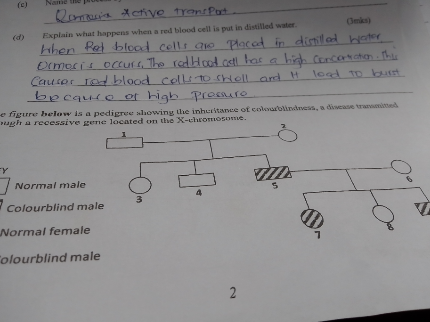 (c) Name the
Osmosis Active transport.
(d) Explain what happens when a red blood cell is put in distilled water. (3mks)
When Red blood cells are Placed in distilled water
Osmosis occurs. The red blood cell has a high concentration. This
Causes red blood cells to and it lead to burst
because of high Pressure
e figure below is a pedigree showing the inheritance of colourblindness, a disease transmitted
ough a recessive gene located on the X-chromosome.
1
2
Y
Normal male
3
4
5
6
Colourblind male
Normal female
7
8
olourblind male
2